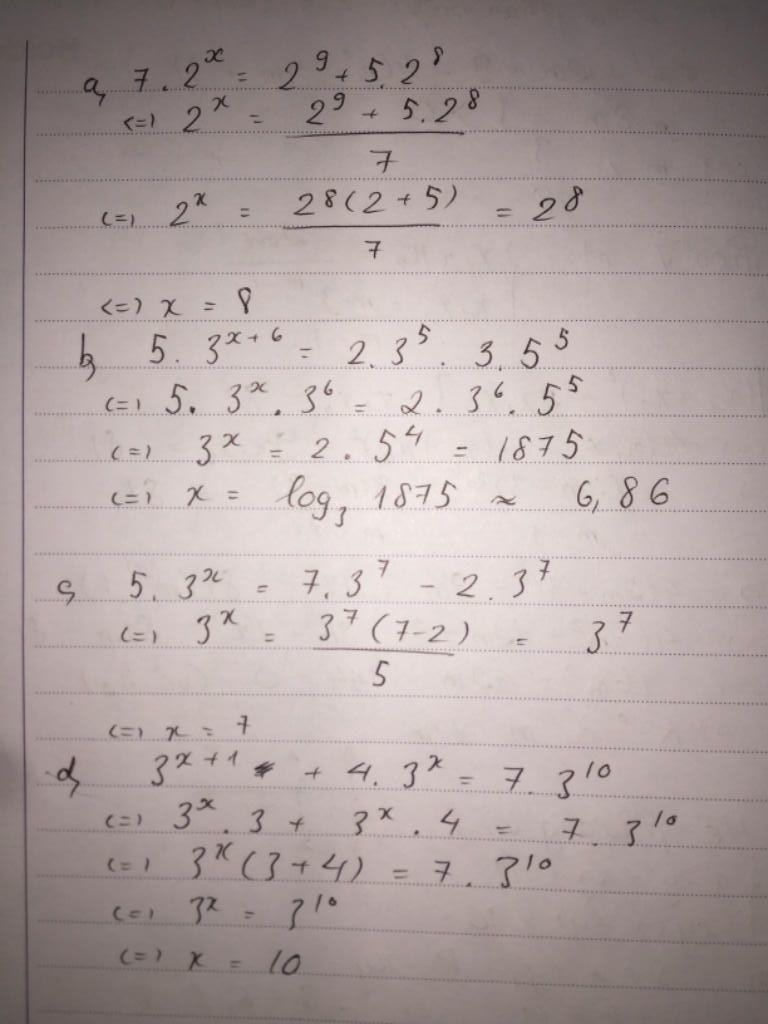 a, 7 . 2^x = 2^9 + 5.2^8
<=> 2^x = (2^9 + 5.2^8)/7
<=> 2^x = (2^8(2+5))/7 = 2^8
<=> x = 8
b, 5. 3^(x+6) = 2.3^5 . 3.5^5
<=> 5. 3^x . 3^6 = 2 . 3^6 . 5^5
<=> 3^x = 2 . 5^4 = 1875
<=> x = log_3 1875 ≈ 6,86
c, 5. 3^x = 7.3^7 - 2.3^7
<=> 3^x = (3^7(7-2))/5 = 3^7
<=> x = 7
d, 3^(x+1) + 4. 3^x = 7.3^10
<=> 3^x . 3 + 3^x . 4 = 7. 3^10
<=> 3^x (3+4) = 7 . 3^10
<=> 3^x = 3^10
<=> x = 10